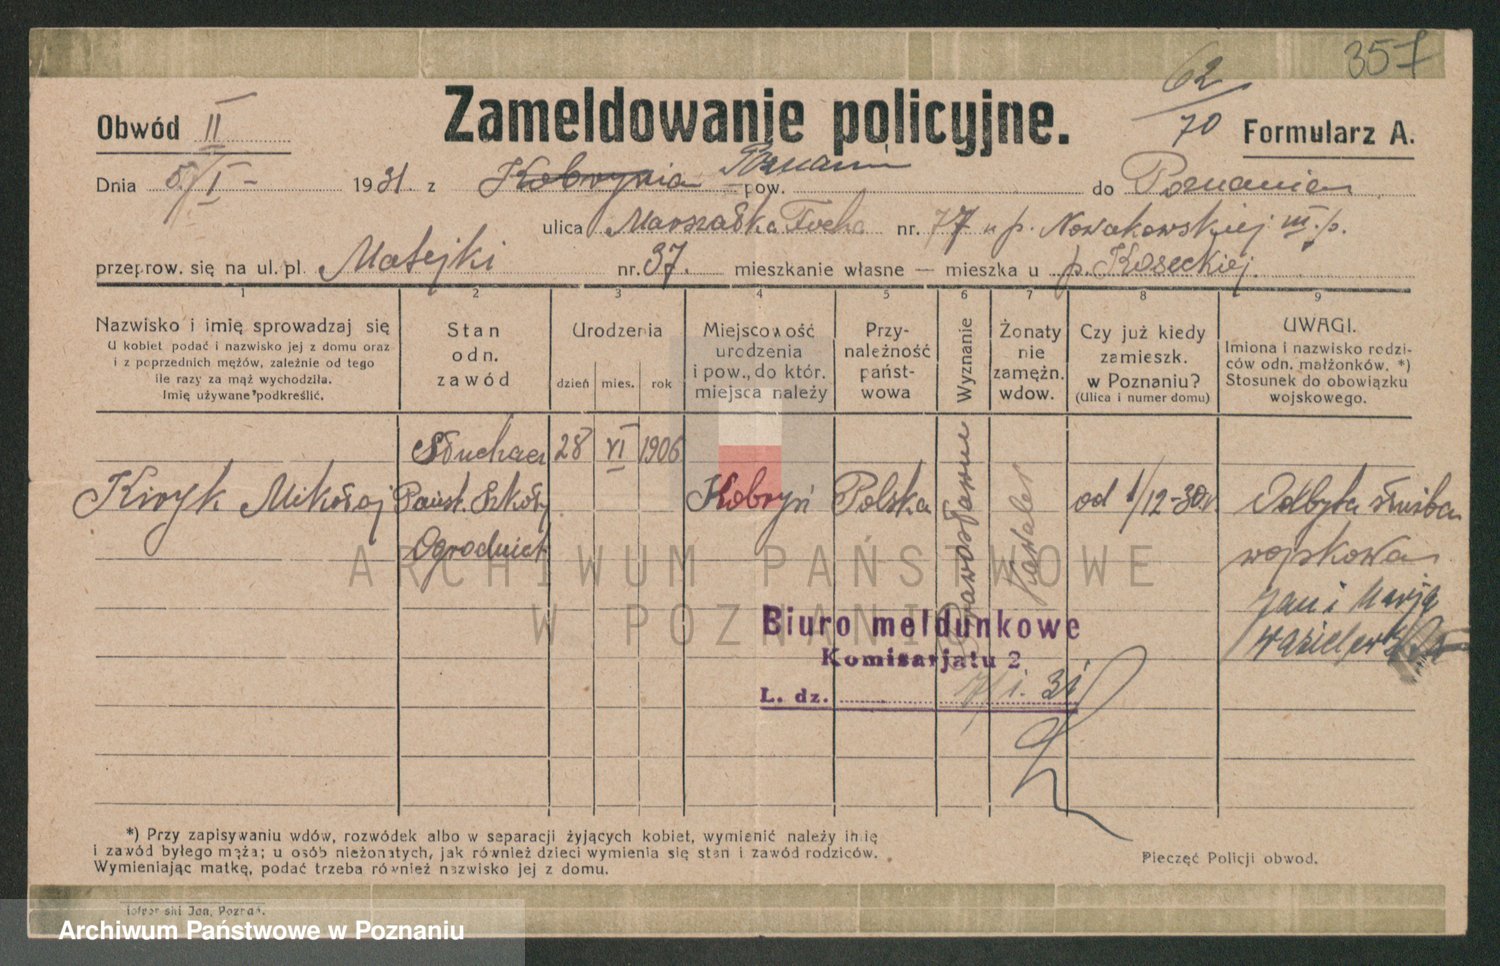 357
62/70
Obwód II
Zameldowanie policyjne.
Formularz A.
Dnia 5/I - 1931. z Kobrynia Poznania pow. do Poznania
ulica Marszałka Focha nr. 77 u p. Nowakowskiej III p.
przeprow. się na ul. pl. Matejki nr. 37. mieszkanie własne — mieszka u p. Koseckiej.
1 2 3 4 5 6 7 8 9
Nazwisko i imię sprowadzaj się
U kobiet podać i nazwisko jej z domu oraz
i z poprzednich mężów, zależnie od tego
ile razy za mąż wychodziła.
Imię używane podkreślić.
Stan
odn.
zawód
Urodzenia
dzień mies. rok
Miejscowość
urodzenia
i pow., do któr.
miejsca należy
Przy-
należność
państ-
wowa
Wyznanie
Żonaty
nie
zamężn.
wdow.
Czy już kiedy
zamieszk.
w Poznaniu?
(Ulica i numer domu)
UWAGI.
Imiona i nazwisko rodzi-
ców odn. małżonków. *)
Stosunek do obowiązku
wojskowego.
Kiryk Mikołaj
Słuchacz
Państ. Szkoły
Ogrodnict.
28 VI 1906
Kobryń
Polska
Prawosławne
Kawaler
od 1/12-30 r.
Odbyta służba
wojskowa
Jan i Marja
ARCHIWUM PAŃSTWOWE
W POZNANIU
Biuro meldunkowe
Komisarjatu 2
L. dz. 7/I. 31
*) Przy zapisywaniu wdów, rozwódek albo w separacji żyjących kobiet, wymienić należy imię
i zawód byłego męża; u osób nieżonatych, jak również dzieci wymienia się stan i zawód rodziców.
Wymieniając matkę, podać trzeba również nazwisko jej z domu.
Pieczęć Policji obwod.
Jan, Poznań.
Archiwum Państwowe w Poznaniu